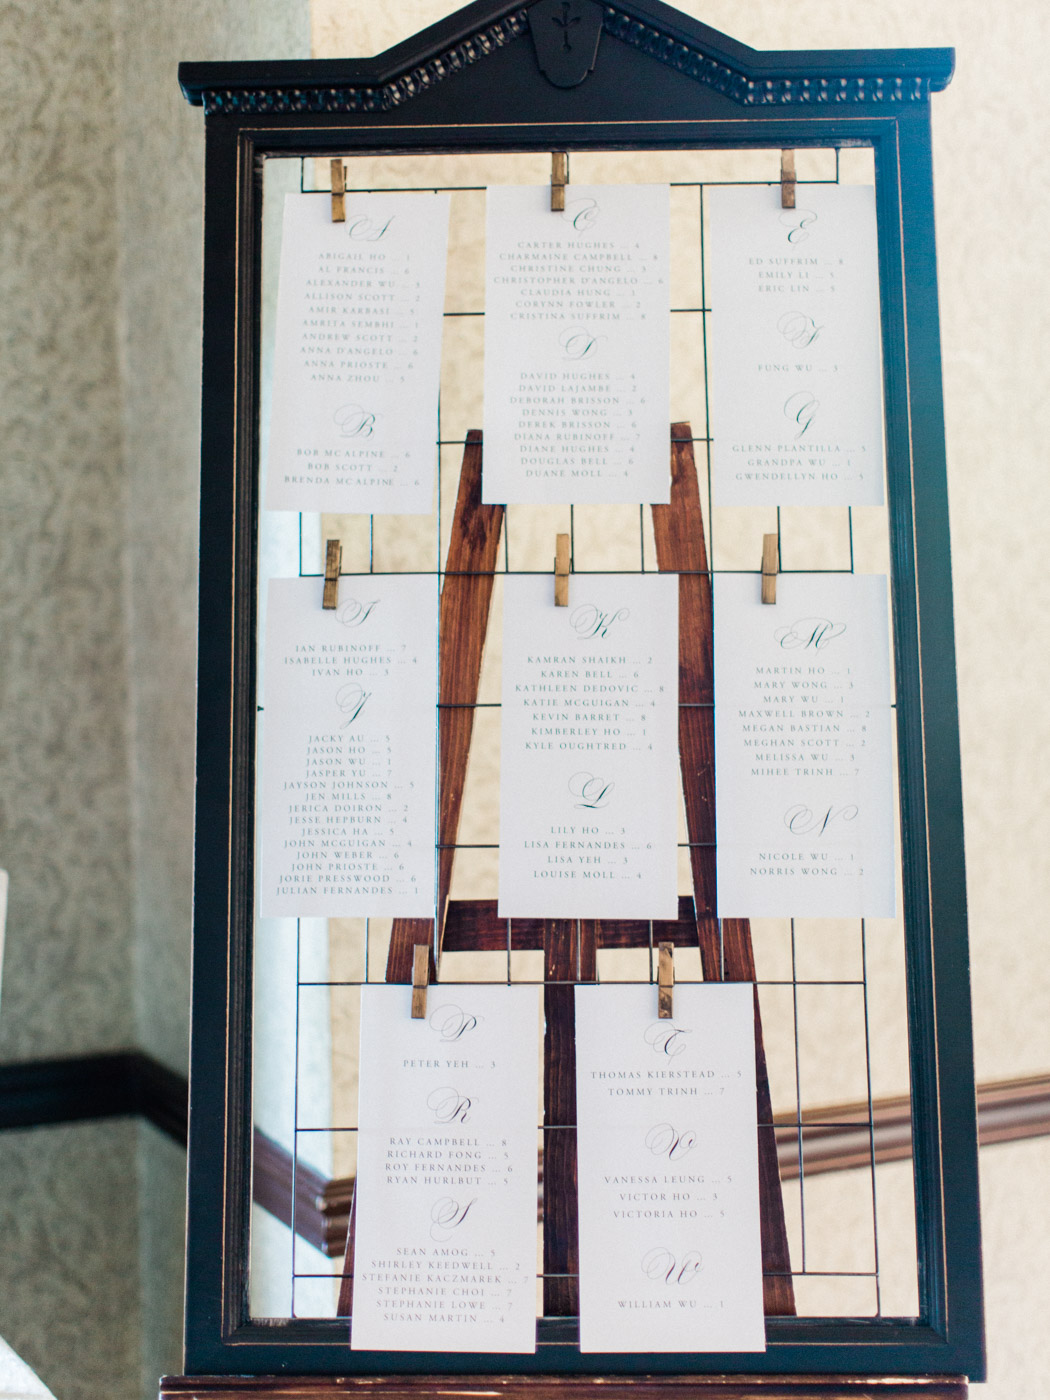 A
ABIGAIL HO ... 1
AL FRANCIS ... 6
ALEXANDER WU ... 3
ALLISON SCOTT ... 2
AMIR KARBASI ... 5
AMRITA SEMBHI ... 1
ANDREW SCOTT ... 2
ANNA D'ANGELO ... 6
ANNA PRIOSTE ... 6
ANNA ZHOU ... 5
B
BOB MCALPINE ... 6
BOB SCOTT ... 2
BRENDA MCALPINE ... 6
C
CARTER HUGHES ... 4
CHARMAINE CAMPBELL ... 8
CHRISTINE CHUNG ... 3
CHRISTOPHER D'ANGELO ... 6
CLAUDIA HUNG ... 1
CORYNN FOWLER ... 2
CRISTINA SUFFRIM ... 8
D
DAVID HUGHES ... 4
DAVID LAJAMBE ... 2
DEBORAH BRISSON ... 6
DENNIS WONG ... 3
DEREK BRISSON ... 6
DIANA RUBINOFF ... 7
DIANE HUGHES ... 4
DOUGLAS BELL ... 6
DUANE MOLL ... 4
E
ED SUFFRIM ... 8
EMILY LI ... 5
ERIC LIN ... 5
F
FUNG WU ... 3
G
GLENN PLANTILLA ... 5
GRANDPA WU ... 1
GWENDELLYN HO ... 5
I
IAN RUBINOFF ... 7
ISABELLE HUGHES ... 4
IVAN HO ... 3
J
JACKY AU ... 5
JASON HO ... 5
JASON WU ... 1
JASPER YU ... 7
JAYSON JOHNSON ... 5
JEN MILLS ... 8
JERICA DOIRON ... 2
JESSE HEPBURN ... 4
JESSICA HA ... 5
JOHN MCGUIGAN ... 4
JOHN WEBER ... 6
JOHN PRIOSTE ... 6
JORIE PRESSWOOD ... 6
JULIAN FERNANDES ... 1
K
KAMRAN SHAIKH ... 2
KAREN BELL ... 6
KATHLEEN DEDOVIC ... 8
KATIE MCGUIGAN ... 4
KEVIN BARRET ... 8
KIMBERLEY HO ... 1
KYLE OUGHTRED ... 4
L
LILY HO ... 3
LISA FERNANDES ... 6
LISA YEH ... 3
LOUISE MOLL ... 4
M
MARTIN HO ... 1
MARY WONG ... 3
MARY WU ... 1
MAXWELL BROWN ... 2
MEGAN BASTIAN ... 8
MEGHAN SCOTT ... 2
MELISSA WU ... 3
MIHEE TRINH ... 7
N
NICOLE WU ... 1
NORRIS WONG ... 2
P
PETER YEH ... 3
R
RAY CAMPBELL ... 8
RICHARD FONG ... 5
ROY FERNANDES ... 6
RYAN HURLBUT ... 5
S
SEAN AMOG ... 5
SHIRLEY KEEDWELL ... 2
STEFANIE KACZMAREK ... 7
STEPHANIE CHOI ... 7
STEPHANIE LOWE ... 7
SUSAN MARTIN ... 4
T
THOMAS KIERSTEAD ... 5
TOMMY TRINH ... 7
V
VANESSA LEUNG ... 5
VICTOR HO ... 3
VICTORIA HO ... 5
W
WILLIAM WU ... 1